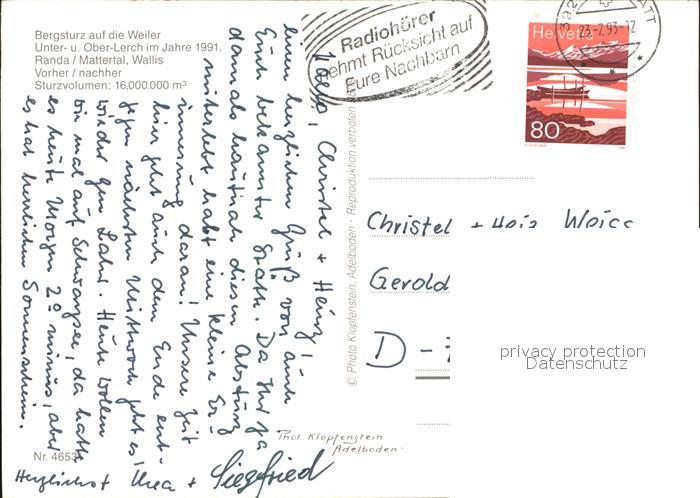 Bergsturz auf die Weiler
Unter- u. Ober-Lerch im Jahre 1991.
Randa / Mattertal, Wallis
Vorher / nachher
Sturzvolumen: 16,000.000 m³
Hallo, Christel + Heinz!
einen herzlichen Gruß von
Euch bekannter Stätte. Da Ihr ja
damals hautnah diesen Absturz
miterlebt habt eine kleine Er-
innerung daran! Unsere Zeit
hier geht auch dem Ende ent-
gegen nächsten Mittwoch geht es
wieder gen Lahr. Heute wollen
wir mal auf Schwarzsee, da hatte
es heute Morgen 2° minus, aber
es hat herrlichen Sonnenschein.
Herzlichst Thea + Siegfried
Nr. 4653
Phot Klopfenstein
Adelboden
© Photo Klopfenstein, Adelboden - Reproduktion verboten
Radiohörer
nehmt Rücksicht auf
Eure Nachbarn
23-7.93-12
Helvetia
80
Christel + Heinz
Gerold
D - 7
privacy protection
Datenschutz